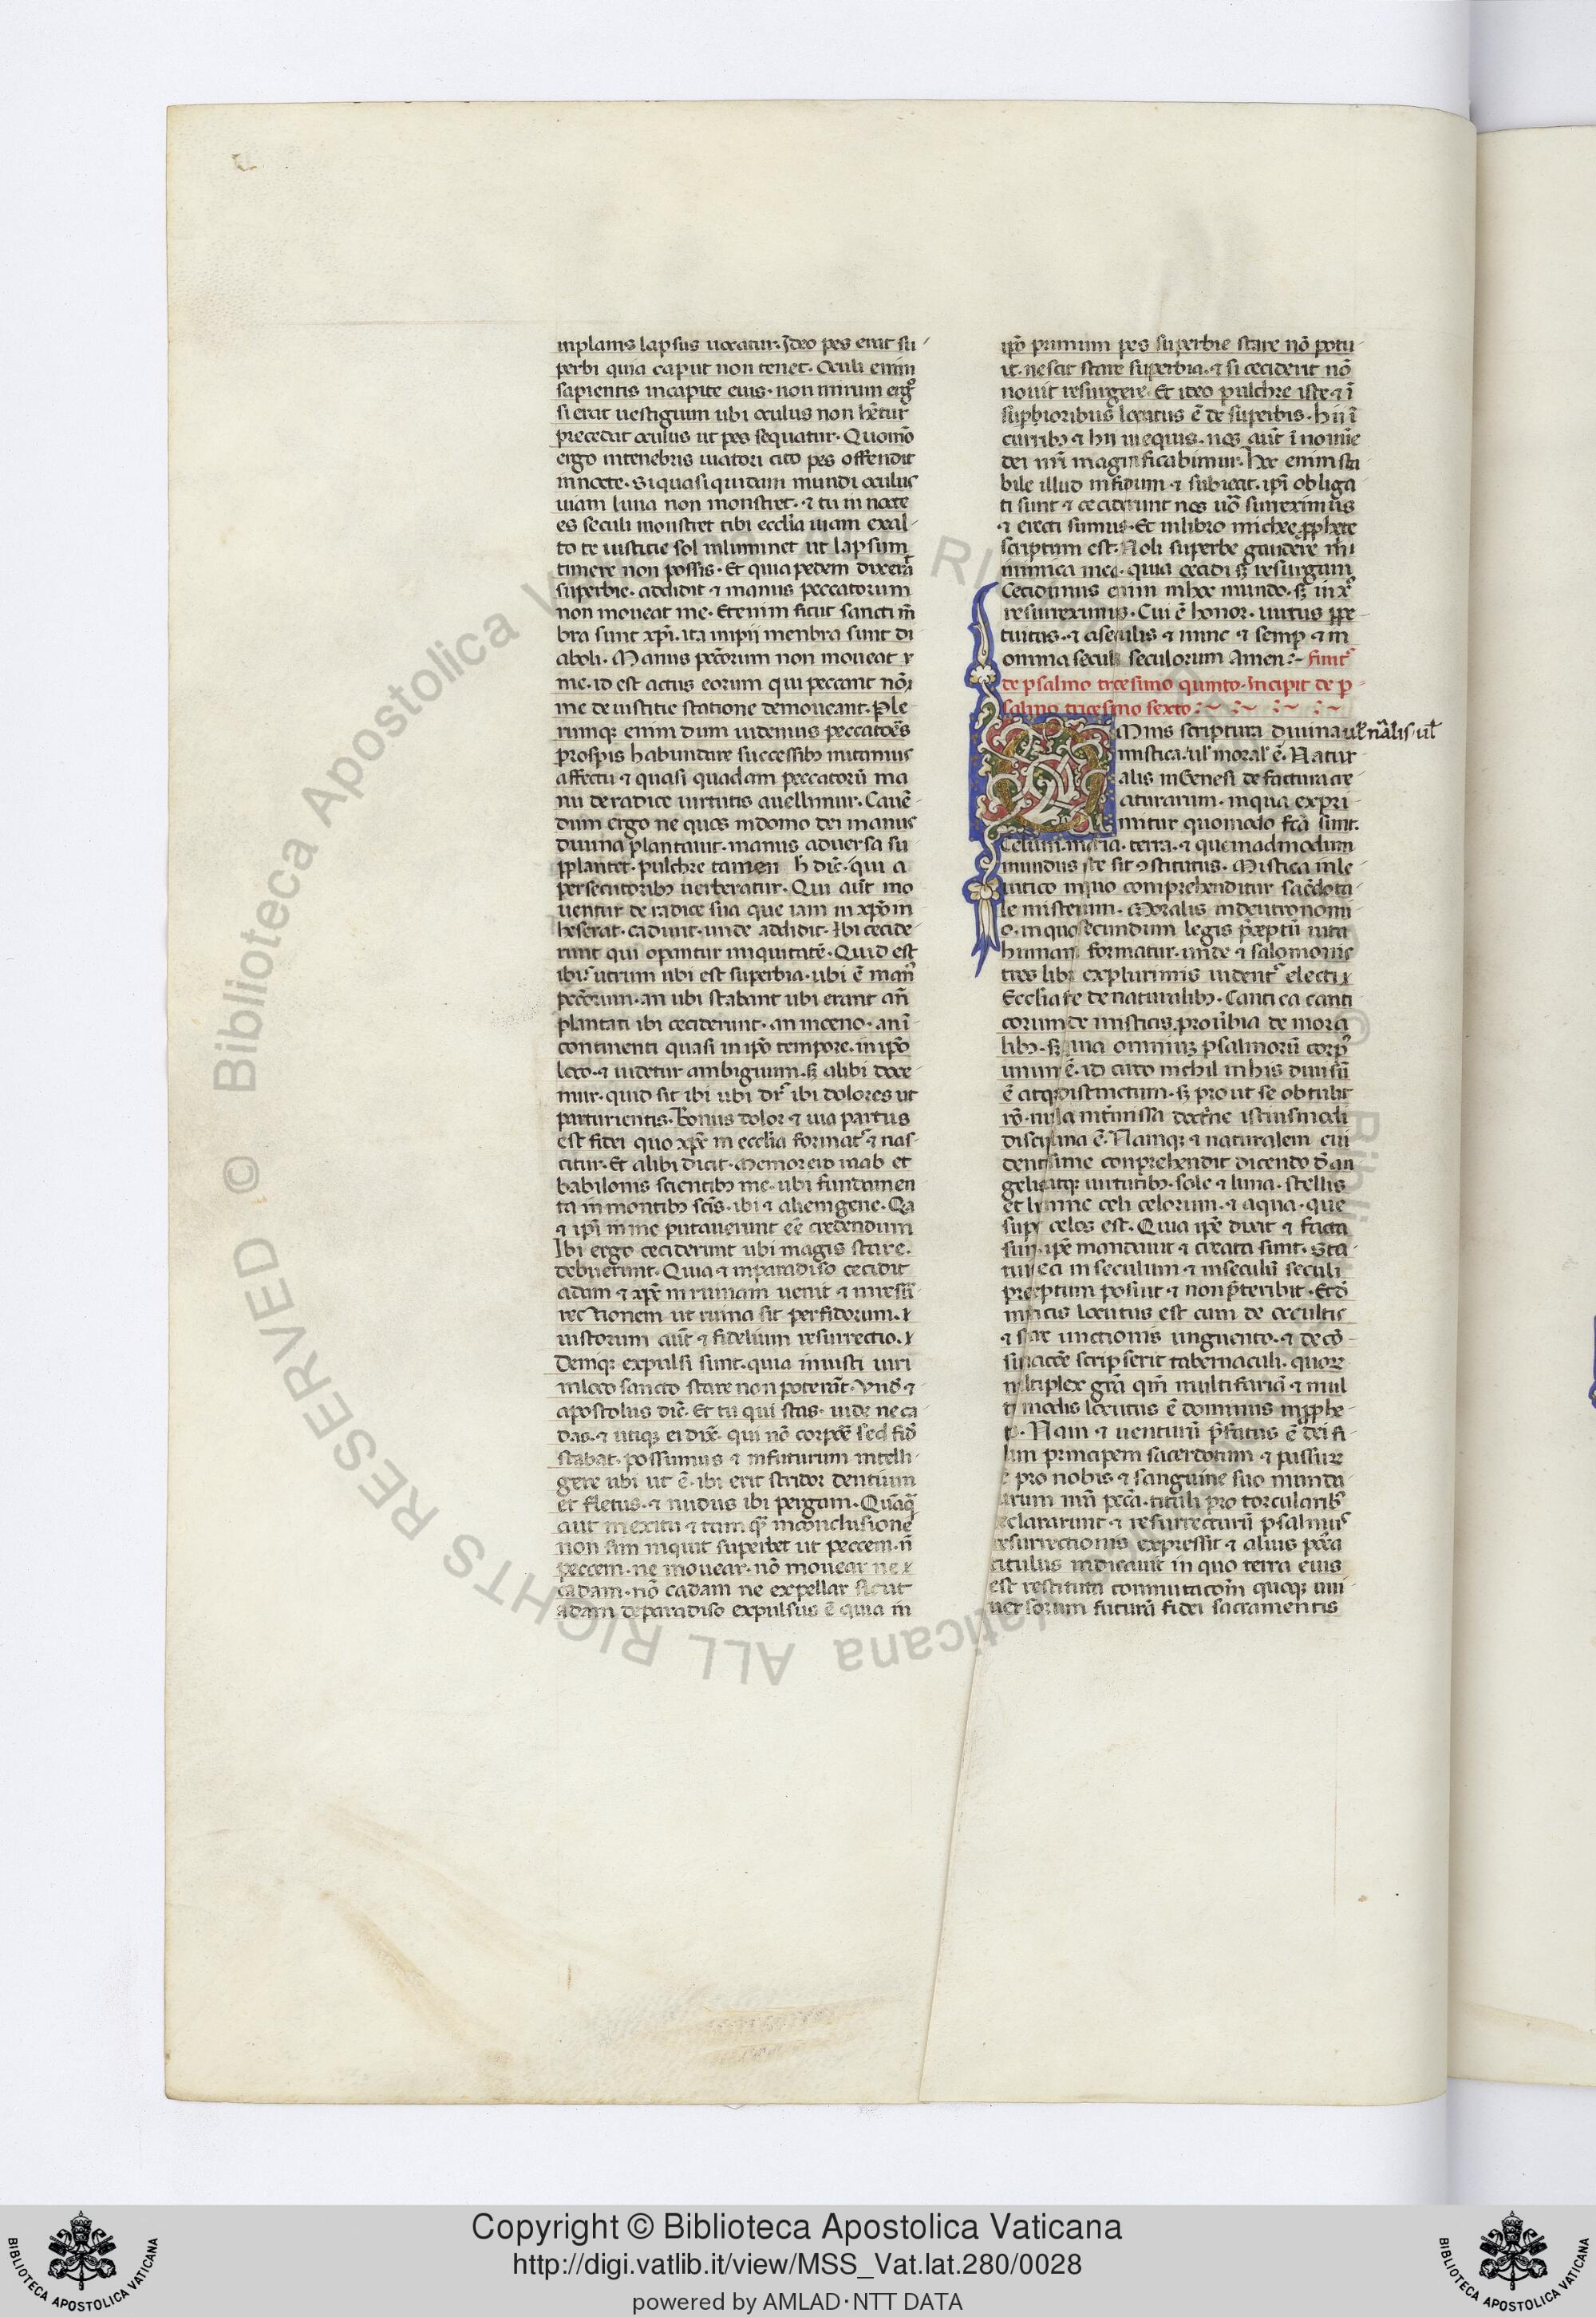 inplanis lapsus uocatur. Ideo pes errat su
perbi quia caput non tenet. Oculi enim
sapientis incapite eius. non mirum erg̉
si errat uestigium ubi oculus non hr̄etur
precedat oculus ut pes sequatur. Quomō
ergo intenebris uiatori cito pes offendit
in nocte. Si quasi quidam mundi oculus
uiam luna non monstret. ⁊ tu in nocte
es seculi monstret tibi ecclīa uiam exal
to te iustitie sol inluminet ut lapsum
timere non possis. Et quia pedem dixerat
superbie. addidit ⁊ manus peccatorum
non moueat me. Etenim sicut sancti m̄
bra sunt xp̄i. ita impij menbra sunt di
aboli. Manus pccōrum non moueat
me. id est actus eorum qui peccant nō
me de iustitie statione demoueant. Ple
rumqꝫ enim dum uidemus peccatoēs
prosꝑis habundare successibꝫ mutamur
affectu ⁊ quasi quadam peccatorū ma
nu de radice uirtutis auellimur. Cauē
dum ergo ne quos indomo dei manus
diuina plantauit. manus aduersa su
pplantet. pulchre tamen h dic̄. qui a
persecutoribꝫ uerberatur. Qui aut̄ mo
uentur de radice sua que iam in xp̄o in
heserat. cadunt. unde addidit. Ibi cecide
runt qui opantur iniquitatē. Quid est
ibi. utrum ubi est superbia. ubi ē man̉
pccōrum. an ubi stabant ubi erant an̄
plantati ibi ceciderunt. an inceno. an ī
continenti quasi in ip̄o tempore. in ip̄o
loco. ⁊ uidetur ambiguum. sꝫ alibi doce
mur. quid sit ibi ubi dr̄ ibi dolores ut
parturientis. Bonus dolor ⁊ uia partus
est fidei quo xp̄c in ecclīa format̉ ⁊ nas
citur. Et alibi dicit. Memor ero raab et
babilonis scientibꝫ me. ubi fundamen
ta in montibꝫ scīs. ibi ⁊ alienigene. Qa
⁊ ip̄i in me putauerunt eē credendum
Ibi ergo ceciderunt ubi magis stare.
debuerunt. Quia ⁊ inparadiso cecidit
adam ⁊ xp̄c in ruinam uenit ⁊ inresur
rectionem ut ruina sit perfidorum.
iustorum aut̄ ⁊ fidelium resurrectio.
Deniqꝫ expulsi sunt. quia iniusti uiri
inloco sancto stare non poterāt. Vnd̄ ⁊
apostolus dic̄. Et tu qui stas. uide ne ca
das. ⁊ utiqꝫ ei dix̄. qui nō corpoē sed fid̄
stabat. possumus ⁊ infuturum intelli
gere ubi ut ē. ibi erit stridor dentium
et fletus. ⁊ nudus ibi pergam. Quāqā
aut inexitu ⁊ tamqꝫ inconclusione
non sim inquit superbet ut peccem. n̄
peccem. ne mouear. nō mouear ne
cadam. nō cadam ne expellar sicut
adam deparadiso expulsus ē quia in
ip̄o primum pes superbie stare nō potu
it. nescit stare superbia. ⁊ si ceciderit nō
nouit resurgere. Et ideo pulchre iste ⁊ ī
supꝑioribus locutus ē de superbis. hii ī
curribꝫ ⁊ hii in equis. nos aut̄ ī nomīe
dei nr̄i magnificabimur. hoc enim sta
bile illud infidum. ⁊ subiecit. ip̄i obliga
ti sunt ⁊ ceciderunt nos uō surreximus
⁊ erecti sumus. Et inlibro michee pphete
scriptum est. Noli superbe gaudere m̄i
inimica mea. quia cecidi sꝫ resurgam
Cecidimus enim inhoc mundo. sꝫ in xp̄o
resurreximus. Cui ē honor. uirtus ppe
tuitas. ⁊ aseculis ⁊ nunc ⁊ semp ⁊ in
omnia secula seculorum Amen :~ finit̉
de psalmo tricesimo quinto. Incipit de p
salmo tricesimo sexto :~ :~ :~ :~
OMnis scriptura diuina uel nāłis. uł
mistica. uł moral̉ ē. Natur
alis inGenesi de factura cre
aturarum. inqua expri
mitur quomodo fcā sunt.
Celum. maria. terra. ⁊ quemadmodum
mundus iste sit ↄstitutus. Mistica inle
uitico inquo comprehenditur sacdota
le misterium. Moralis indeutronomi
o. in quo secundum legis pceptū uita
humana formatur. unde ⁊ salomonis
tres libri explurimis uident̉ electi
Ecclīastes de naturalibꝫ. Cantica canti
corum de misticis. prouerbia de mora
libꝫ. sꝫ quia omnium psalmorū corp̉
unum ē. id circo nichil in his diuisū
ē atqꝫ distinctum. sꝫ prout se obtulit
rō. nulla intermissa doctrine istiusmodi
disciplina ē. Namqꝫ ⁊ naturalem eui
dentissime conprehendit dicendo de an
gelis atqꝫ uirtutibꝫ. sole ⁊ luna. stellis
et lumine celi celorum. ⁊ aqua. que
super celos est. Quia ip̄e dixit ⁊ facta
sunt. ip̄e mandauit ⁊ creata sunt. Sta
tuit ea in seculum ⁊ inseculū seculi
preceptum posuit ⁊ non pteribit. Et d̄
misticis locutus est cum de occultis
⁊ unctionis unguento. ⁊ de cō
scripserit tabernaculi. quo re
multiplex grā qm̄ multifariā ⁊ mul
tis modis locutus ē dominus in pphe
tis. Nam ⁊ uenturū pfatus ē dei fi
lium principem sacerdotum ⁊ passure
pro nobis ⁊ sanguine suo munda
turum nr̄a pccā. tituli pro torcularibꝫ
declararunt. ⁊ resurrecturū psalmus
resurrectionis expressit ⁊ alius
titulus indicauit in quo terra eius
est restituta commutacōm quoqꝫ uni
uersorum futurā fidei sacramentis
© Biblioteca Apostolica Vaticana ALL RIGHTS RESERVED
Copyright © Biblioteca Apostolica Vaticana
http://digi.vatlib.it/view/MSS_Vat.lat.280/0028
powered by AMLAD·NTT DATA
BIBLIOTECA APOSTOLICA VATICANA
BIBLIOTECA APOSTOLICA VATICANA